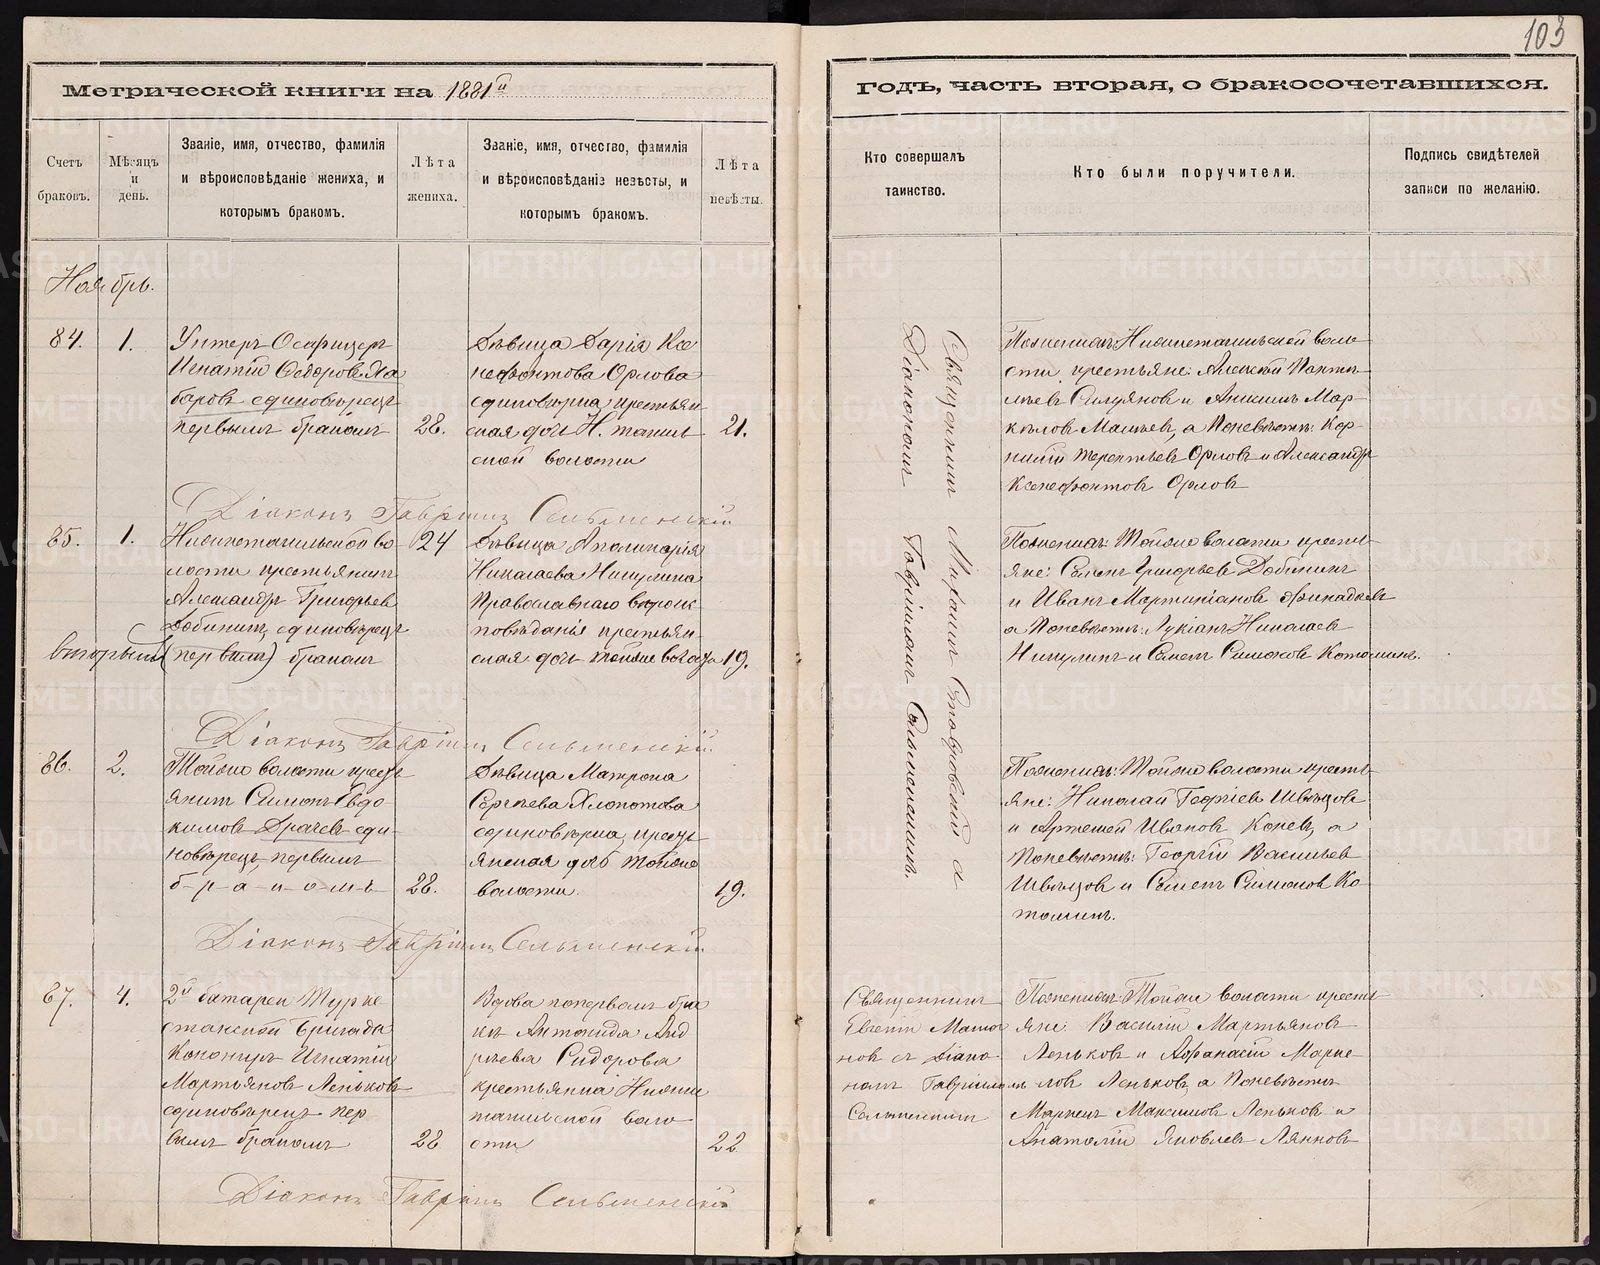 103
Метрической книги на 1881й
годъ, часть вторая, о бракосочетавшихся.
Счетъ браковъ.
Мѣсяцъ и день.
Званіе, имя, отчество, фамилія и вѣроисповѣданіе жениха, и которымъ бракомъ.
Лѣта жениха.
Званіе, имя, отчество, фамилія и вѣроисповѣданіе невѣсты, и которымъ бракомъ.
Лѣта невѣсты.
Кто совершалъ таинство.
Кто были поручители.
Подпись свидѣтелей записи по желанію.
Ноябрь.
84.
1.
Унтеръ Осафицеръ
Игнатій Ѳедоровъ Ха
баровъ единовѣрецъ
первымъ бракомъ
28.
Дѣвица Дарія Ксе
нефонтова Орлова
единовѣрка, крестьян
ская дочь Н. тагиль
ской волости
21.
Священникъ Михаилъ Стахѣевскій съ
Діакономъ Гавріиломъ Сельменскимъ.
Поженихѣ: Нижнетагильской воло
сти крестьяне: Алексѣй Панти
лѣевъ Силуяновъ и Аникинъ Мар
кѣловъ, а Поневѣстѣ: Кор
нилій Терентьевъ Орловъ и Александръ
Ксенефонтовъ Орловъ
Діаконъ Гавріилъ Сельменскій
85.
1.
Нижнетагильской во
лости крестьянинъ
Александръ Григорьевъ
Бабинъ, единовѣрецъ
вторымъ (первымъ) бракомъ
24
Дѣвица Аполинарія
Николаева Никулина
Православнаго вѣроис
повѣданія крестьян
ская дочь тойже волости
19.
Поженихѣ: Тойже волости кресть
яне: Семенъ Григорьевъ Бабинъ
и Иванъ Мартиніановъ
а Поневѣстѣ: Лукіанъ Николаевъ
Никулинъ и Семенъ Симоновъ Котоминъ.
Діаконъ Гавріилъ Сельменскій
86.
2.
Тойже волости кресть
янинъ Симонъ Евдо
кимовъ Драчевъ еди
новѣрецъ, первымъ
б-р-а-к-о-мъ
28.
Дѣвица Матрона
Сергѣева Хлопотова
единовѣрка, кресть
янская дочь тойже
волости.
19.
Поженихѣ: Тойже волости кресть
яне: Николай Георгіевъ Швѣцовъ
и Артемій Ивановъ Коневъ, а
Поневѣстѣ: Георгій Васильевъ
Швѣцовъ и Семенъ Симоновъ Ко
томинъ.
Діаконъ Гавріилъ Сельменскій
87.
4.
2й батареи Турке
станской бригады
Канониръ Игнатій
Мартьяновъ Леньковъ
единовѣрецъ пер
вымъ бракомъ
28
Вдова поперв. бра
кѣ Антонида Анд
рѣева Сидорова
крестьянка Нижне
тагильской воло
сти
22
Священникъ
Евгеній
новъ съ Діако
номъ Гавріиломъ
Сельменскимъ
Поженихѣ: Тойже волости кресть
яне Василій Мартьяновъ
Леньковъ и Афанасій Марке
ловъ Леньковъ, а Поневѣстѣ
Маркелъ Максимовъ Леньковъ и
Анатолій Яковлевъ
Діаконъ Гавріилъ Сельменскій
METRIKI.GASO-URAL.RU